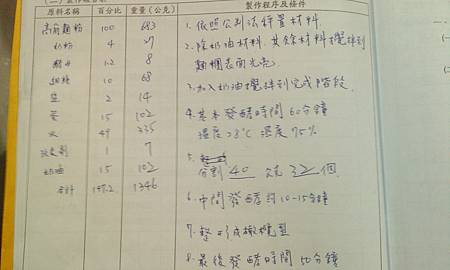 原料名稱 百分比 重量(公克) 製作程序及條件
高筋麵粉 100 683
奶粉 4 27
酵母 1.2 8
細糖 10 68
鹽 2 14
蛋 15 102
水 49 335
改良劑 1 7
奶油 15 102
合計 197.2 1346
1. 依照
材料
2. 除奶油材料,其餘材料攪拌到
麵糰表面光亮
3. 加入奶油攪拌到完成階段
4. 基本發酵時間60分鐘
溫度28°C 濕度75%
5.
分割 40 克 32 個
6. 中間發酵約10-15分鐘
7. 整形成橄欖型
8. 最後發酵時間50分鐘